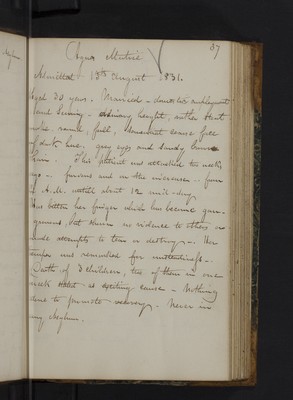 87
Agnes
Admitted 18th August 1831.
Aged 30 years. Married - domestic employment
and Sewing - Ordinary height, rather stout
make, round, full, somewhat coarse face
of dark hue, grey eyes and sandy brown
hair. This patient was attacked two weeks
ago - furious and on the increase - from
A.M. until about 12 mid-day.
Has bitten her finger which has become gan-
grenous, but shown no violence to others or
made attempts to tear or destroy -. Her
temper was remarked for -
Death of 3 children, two of them in one
week stated as exciting cause - Nothing
done to promote recovery - Never in
any Asylum.